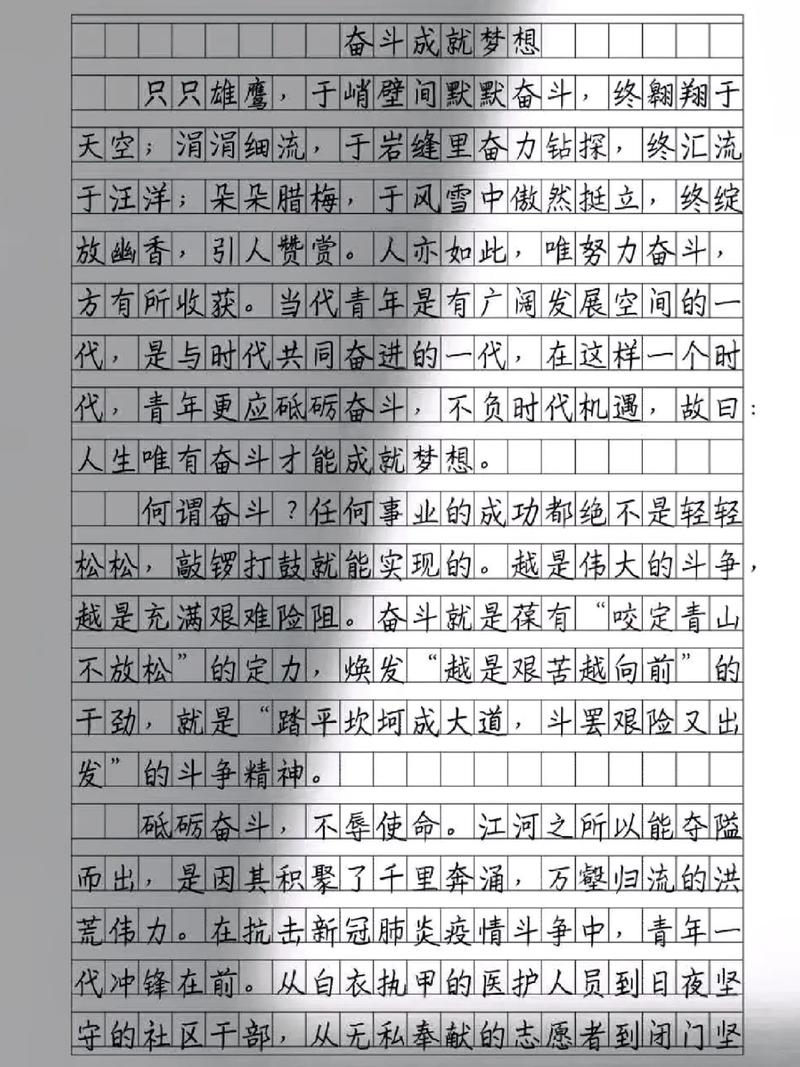 奋斗成就梦想
只只雄鹰，于峭壁间默默奋斗，终翱翔于
天空；涓涓细流，于岩缝里奋力钻探，终汇流
于汪洋；朵朵腊梅，于风雪中傲然挺立，终绽
放幽香，引人赞赏。人亦如此，唯努力奋斗，
方有所收获。当代青年是有广阔发展空间的一
代，是与时代共同奋进的一代，在这样一个时
代，青年更应砥砺奋斗，不负时代机遇，故曰：
人生唯有奋斗才能成就梦想。
何谓奋斗？任何事业的成功都绝不是轻轻
松松，敲锣打鼓就能实现的。越是伟大的斗争，
越是充满艰难险阻。奋斗就是葆有“咬定青山
不放松”的定力，焕发“越是艰苦越向前”的
干劲，就是“踏平坎坷成大道，斗罢艰险又出
发”的斗争精神。
砥砺奋斗，不辱使命。江河之所以能夺隘
而出，是因其积聚了千里奔涌，万壑归流的洪
荒伟力。在抗击新冠肺炎疫情斗争中，青年一
代冲锋在前。从白衣执甲的医护人员到日夜坚
守的社区干部，从无私奉献的志愿者到闭门坚